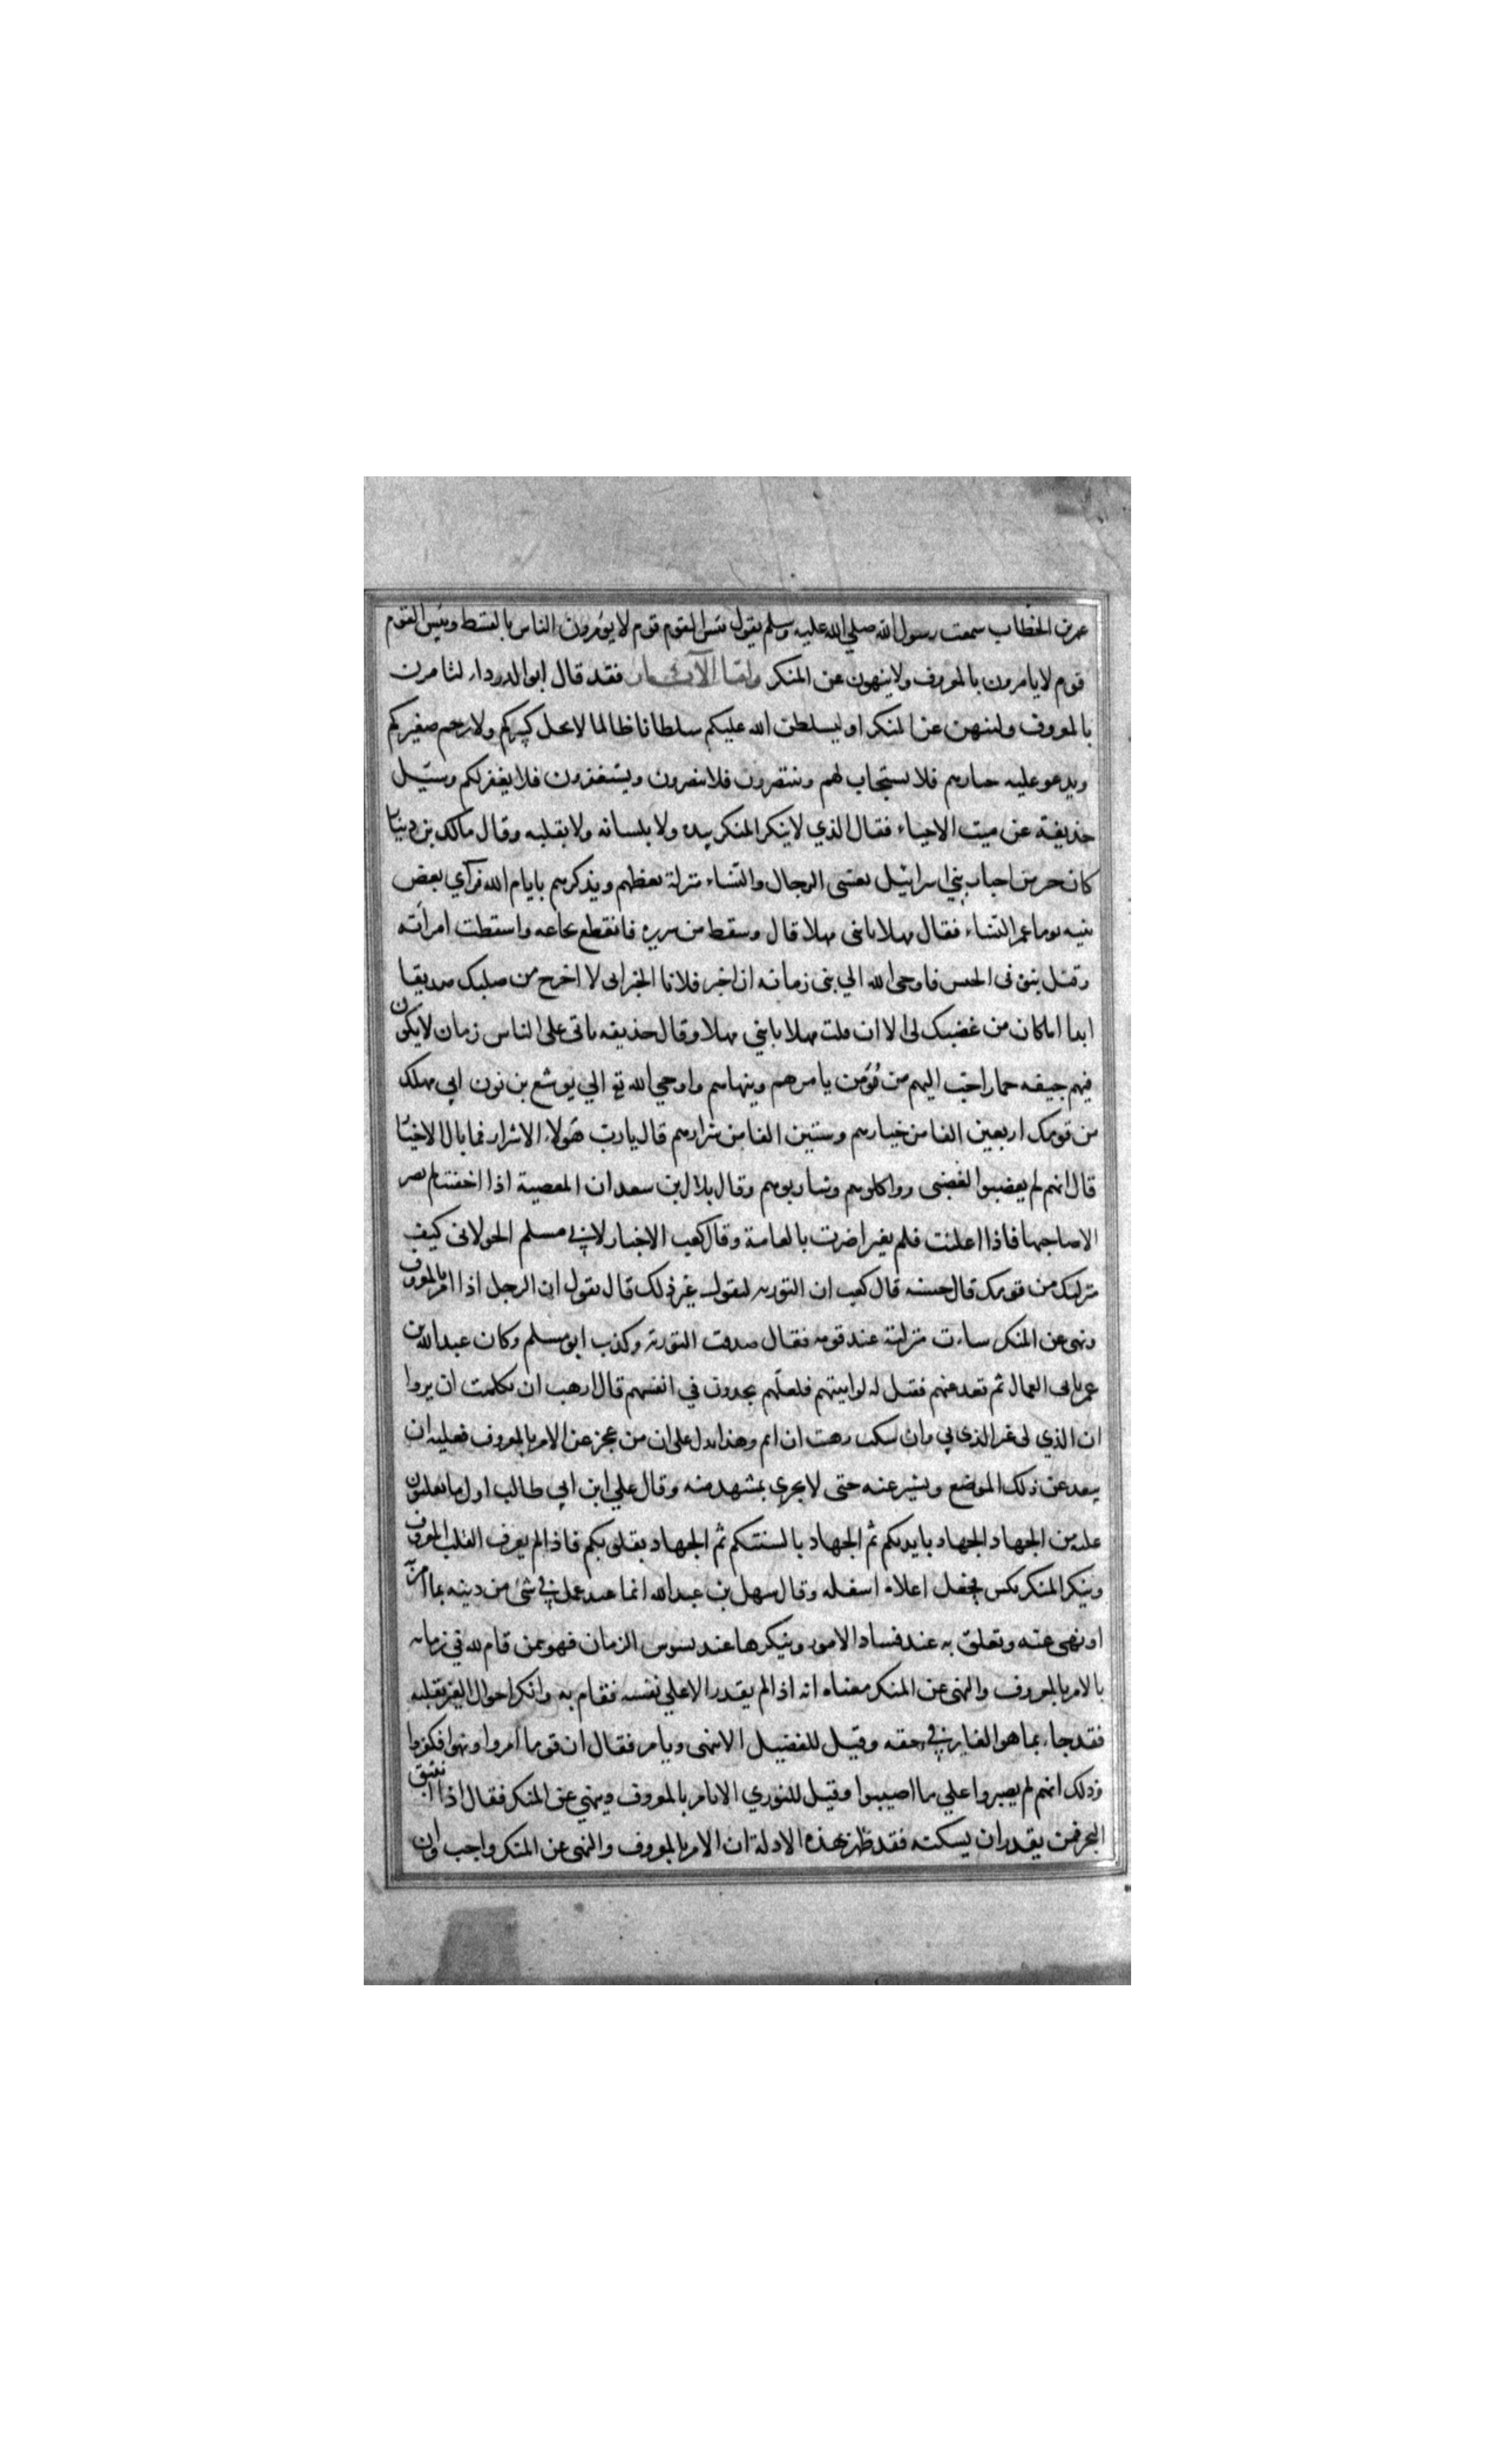 عمر بن الخطاب سمعت رسول الله صلي الله عليه وسلم يقول بئس القوم قوم لا يؤمرون الناس بالقسط وبئس القوم
قوم لا يامرون بالمعروف ولا ينهون عن المنكر واما الآثار فقد قال ابو الدرداء لتامرن
بالمعروف ولتنهن عن المنكر او ليسلطن الله عليكم سلطانا ظالما لا يجل كبيركم ولا يرحم صغيركم
ويدعو عليه خيارهم فلا يستجاب لهم وتنتصرون فلا تنصرون ويستغفرون فلا يغفر لكم وسئيل
حذيفة عن ميت الاحياء فقال الذي لا ينكر المنكر بيده ولا بلسانه ولا بقلبه وقال مالك بن دينار
كان حبر من احبار بني اسرائيل يغشى الرجال والنساء منزله يعظهم ويذكرهم بايام الله فرآي بعض
بنيه يوما غمز النساء فقال مهلا يا بنى مهلا قال وسقط من سريره فانقطع نخاعه واسقطت امرأته
وقتل بنوه فى الجيش فاوحى الله الي نبى زمانه ان اخبر فلانا الخبر انى لا اخرج من صلبك صديقا
ابدا اما كان من غضبك لى الا ان قلت مهلا يا بني مهلا وقال حذيفه ياتى على الناس زمان لا يكون
فيهم جيفه حمار احب اليهم من مؤمن يامرهم وينهاهم واوحي الله تع الي يوشع بن نون اني مهلك
من قومك اربعين الفا من خيارهم وستين الفا من شرارهم قال يا رب هولاء الاشرار فما بال الاخيار
قال انهم لم يغضبوا لغضبى وواكلوهم وشاربوهم وقال بلال بن سعد ان المعصية اذا اخفيت لم تضر
الا صاحبها فاذا اعلنت فلم يغير اضرت بالعامة وقال كعب الاحبار لابي مسلم الخولانى كيف
منزلتك من قومك قال حسنه قال كعب ان التوريه لتقول غير ذلك قال تقول ان الرجل اذا امر بالمعروف
ونهى عن المنكر ساءت منزلته عند قومه فقال صدقت التورية وكذب ابو مسلم وكان عبد الله بن
عمر ياتى العمال ثم قعد عنهم فقيل له لو اتيتهم فلعلهم يجدون في انفسهم قال ارهب ان تكلمت ان يروا
ان الذي لى غير الذي بي وان سكت رهبت ان اثم وهذا يدل على ان من عجز عن الامر بالمعروف فعليه ان
يبعد عن ذلك الموضع ويستر عنه حتى لا يجري بمشهد منه وقال علي ابن ابي طالب اول ما تغلبون
عليه من الجهاد الجهاد بايديكم ثم الجهاد بالسنتكم ثم الجهاد بقلوبكم فاذا لم يعرف القلب المعروف
وينكر المنكر نكس فجعل اعلاه اسفله وقال سهل بن عبد الله انما عبد عمل في شئ من دينه بما امر
او نهى عنه وتعلق به عند فساد الامور وينكرها عند تشوش الزمان فهو ممن قام لله في زمانه
بالامر بالمعروف والنهى عن المنكر معناه انه اذا لم يقدر الا علي نفسه فقام به وانكر احوال الغير بقلبه
فقد جاء بما هو الغاية في حقه وقيل للفضيل الا تنهى ويامر فقال ان قوما امروا ونهوا فكفروا
وذلك انهم لم يصبروا علي ما اصيبوا وقيل للثوري الا تامر بالمعروف وينهي عن المنكر فقال اذا انبثق
البحر فمن يقدر ان يسكته فقد ظهر بهذه الادلة ان الامر بالمعروف والنهى عن المنكر واجب وان